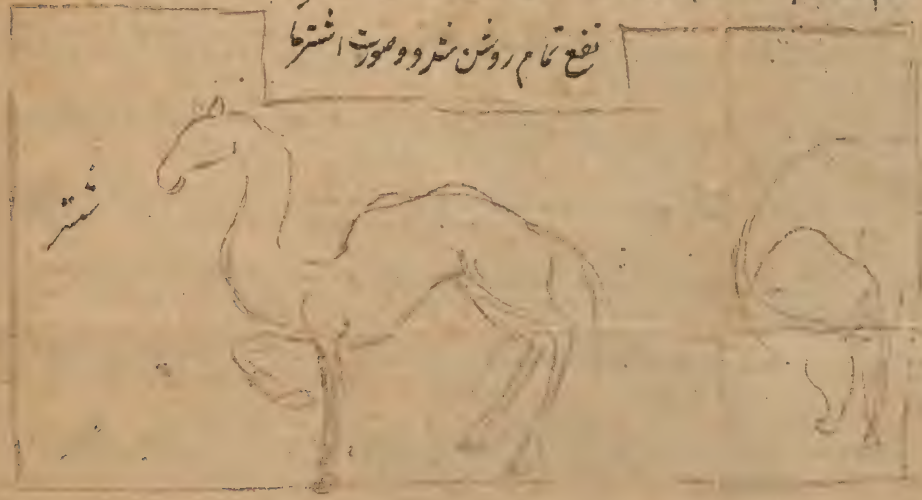 نفع تمام روشن شد و صورت اشترها
شتر